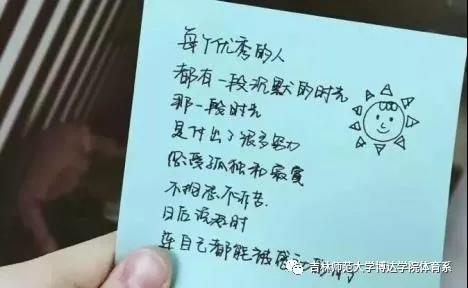 每个优秀的人
都有一段沉默的时光
那一段时光
是付出了很多努力
忍受孤独和寂寞
不抱怨不诉苦
日后说起时
连自己都能被感动的
吉林师范大学博达学院体育系